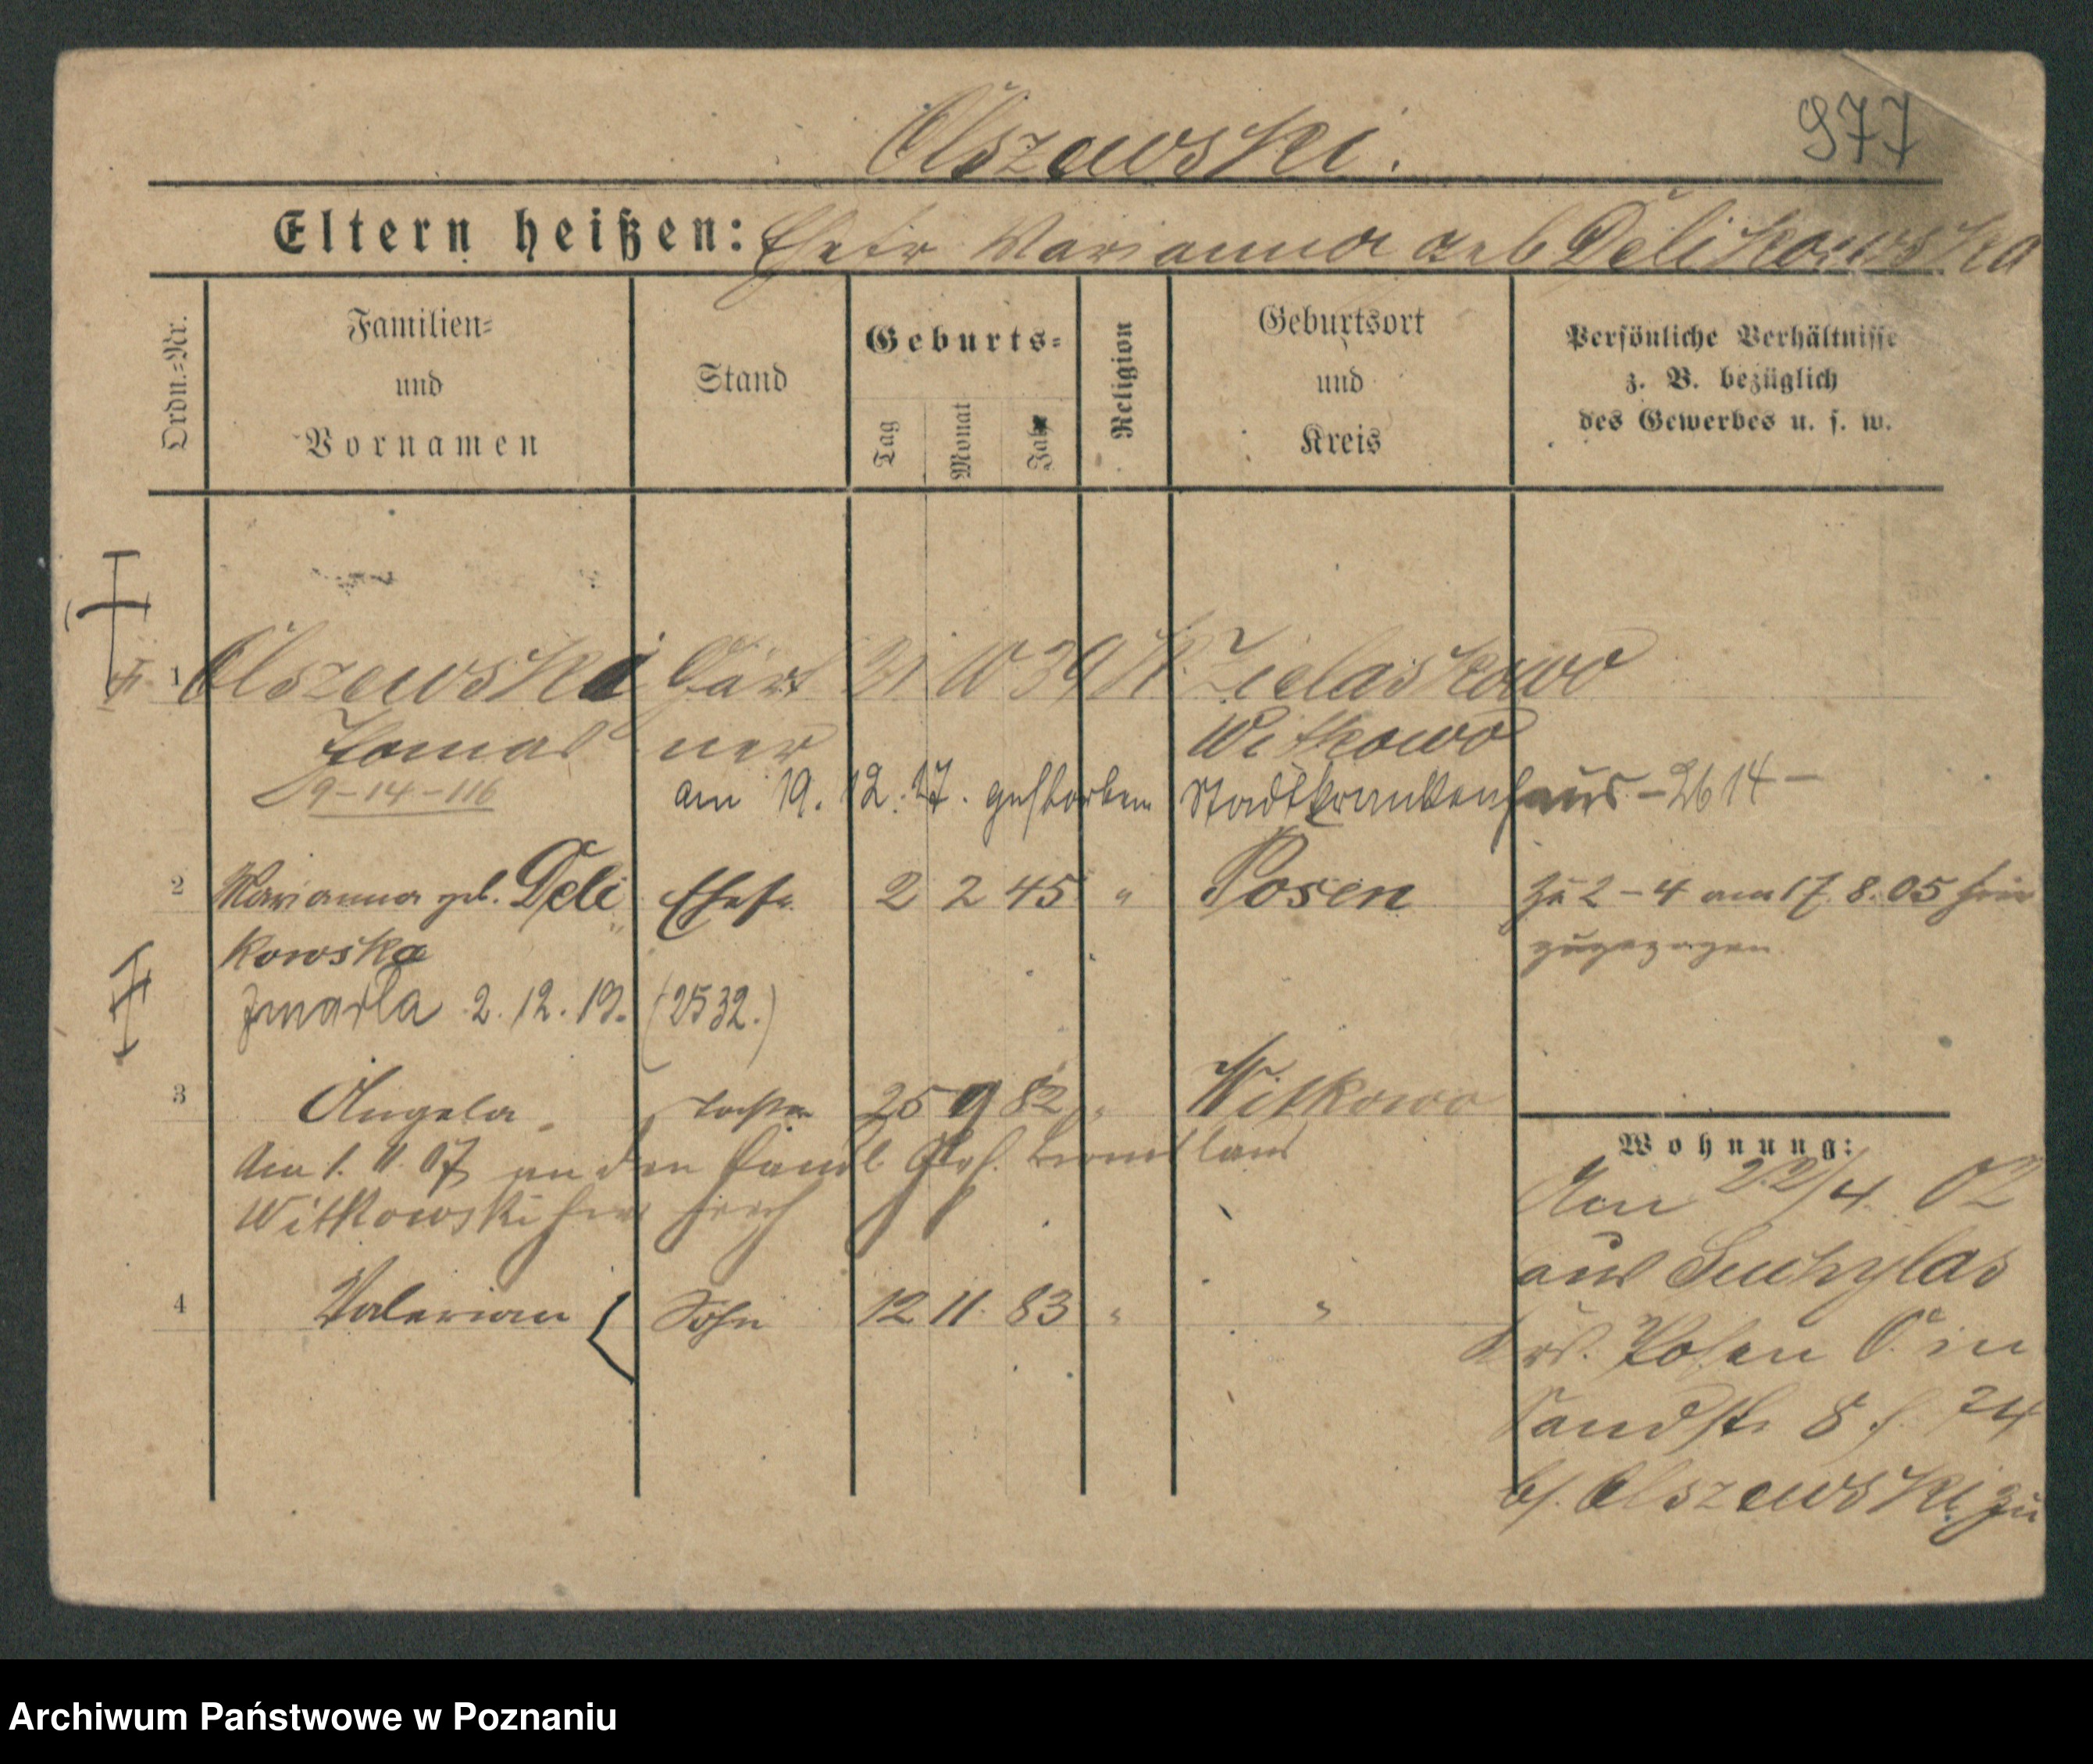 977
Olszewski.
Eltern heißen: Ehefr Marianna geb Delikowska
Ordn.-Nr.
Familien-
und
Vornamen
Stand
Geburts-
Tag
Monat
Jahr
Religion
Geburtsort
und
Kreis
Persönliche Verhältnisse
z. B. bezüglich
des Gewerbes u. s. w.
1 Olszewski Gärt 31 10 39 K. Zielaskowo
Tomas ner Witkowo
9-14-116
am 19. 12. 17. gestorben Stadtkrankenhaus - 2614 -
2 Marianna geb. Deli Ehefr. 2 2 45 " Posen zu 2-4 am 17. 8. 05 hier
kowska zugezogen
zmarła 2. 12. 19. (2532.)
3 Angela Tochter 25 9 82 " Witkowo
Am 1. 11. 07 an den
Witkowski hier
4 Valerian Sohn 12 11. 83 " "
Wohnung:
Am 22/4. 02
aus Suchylas
Krs. Posen O. in
Sandstr 8
b/. Olszewski zu